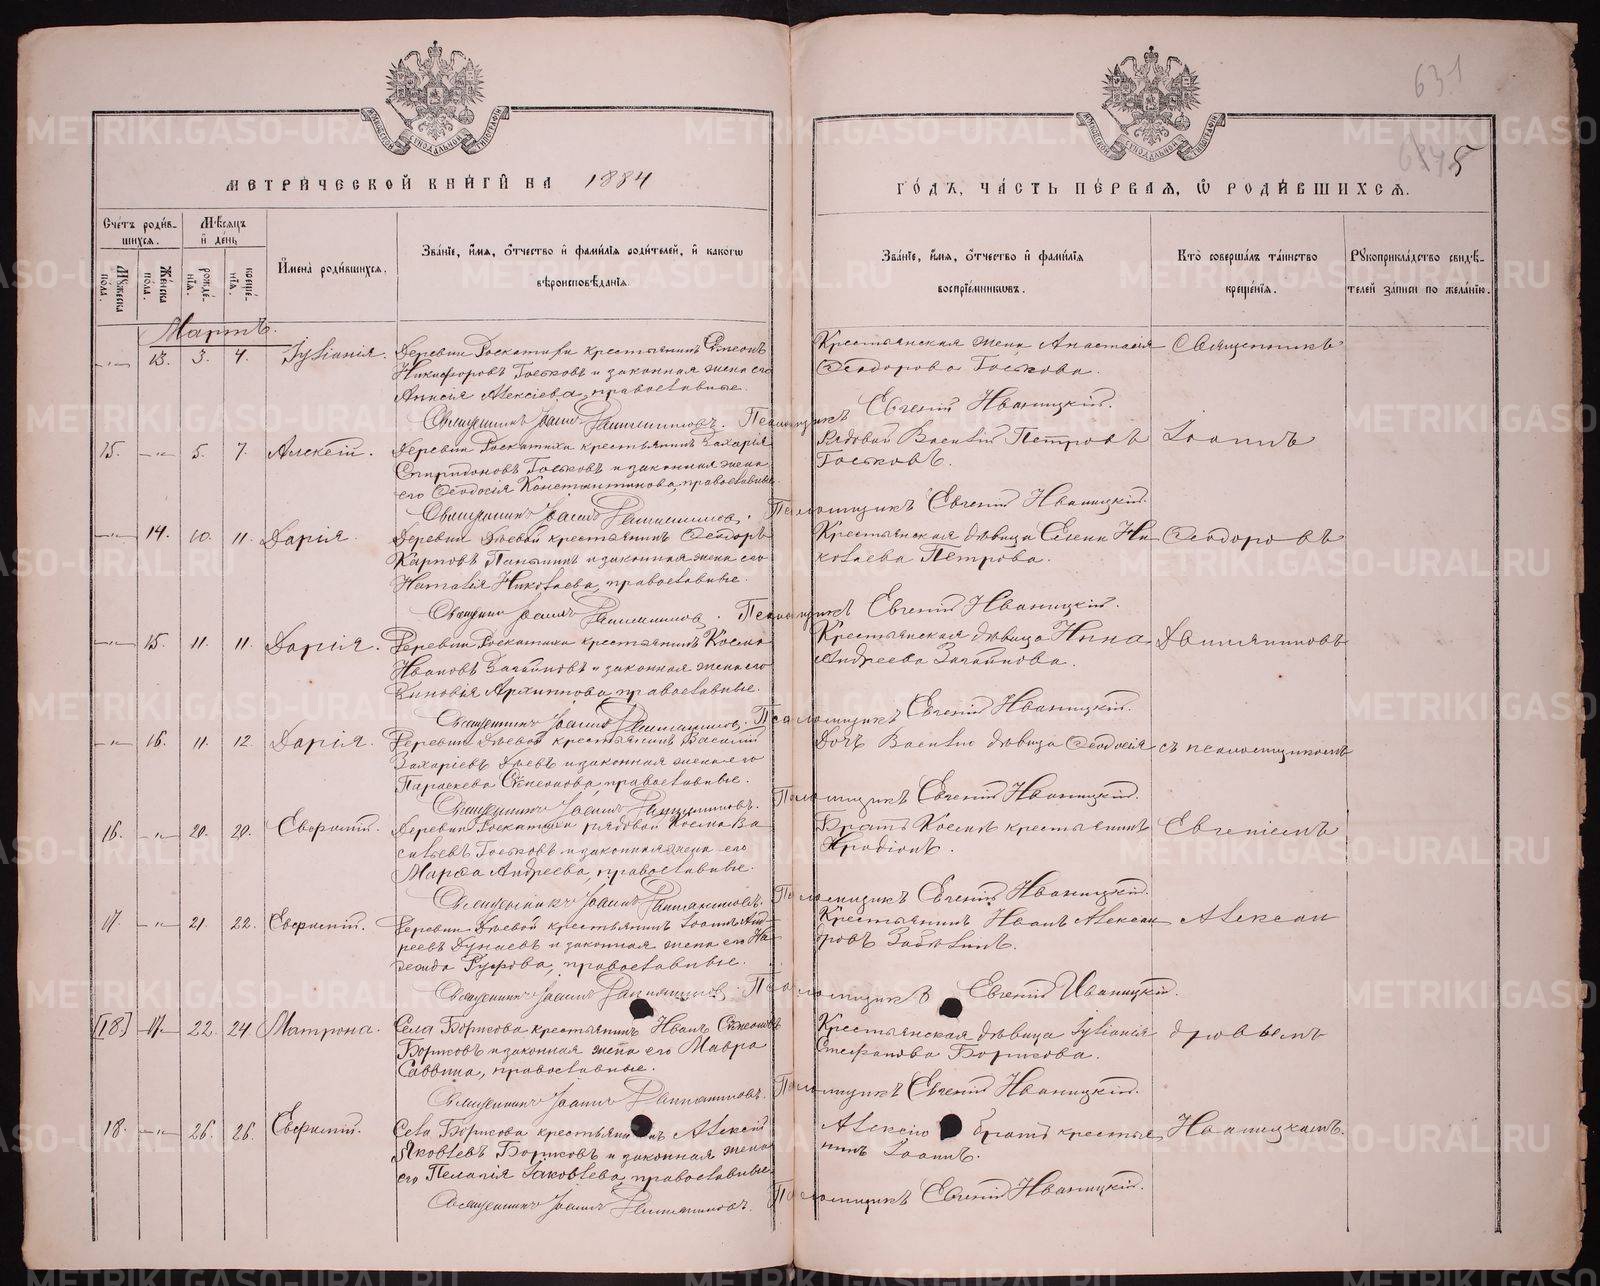 631
5
МЕТРИЧЕСКОЙ КНИГИ НА 1884
ГОДЪ, ЧАСТЬ ПЕРВАЯ, Ѡ РОДИВШИХСЯ.
Счетъ родившихся.
Мужеска пола.
Женска пола.
Мѣсяцъ и день
рожденія.
крещенія.
Имена родившихся.
Званіе, имя, отчество и фамилія родителей, и какого
вѣроисповѣданія.
Званіе, имя, отчество и фамилія
воспріемниковъ.
Кто совершалъ таинство
крещенія.
Рукоприкладство свидѣтелей записи по желанію.
Мартъ.
13. 3. 4. Іуліанія. Деревни крестьянинъ Сѵмеонъ
Никифоровъ Госьковъ и законная жена его
Анисія Алексіева, православные.
Крестьянская жена Анастасія
Ѳеодорова Госькова.
Священникъ
Священникъ Іоаннъ. Псаломщикъ Евгеній Иваницкій.
15. 5. 7. Алексій. Деревни крестьянинъ Захарія
Спиридоновъ Госьковъ и законная жена
его Ѳеодосія Константинова, православные.
Рядовой Василій Петровъ
Госьковъ.
Іоаннъ
Священникъ Іоаннъ. Псаломщикъ Евгеній Иваницкій.
14. 10. 11. Дарія. Деревни крестьянинъ Ѳеодоръ
Карповъ Паньшинъ и законная жена его
Наталія Николаева, православные.
Крестьянская дѣвица Елена Ни
колаева Петрова.
Ѳеодоровъ
Священникъ Іоаннъ. Псаломщикъ Евгеній Иваницкій.
15. 11. 11. Дарія. Деревни крестьянинъ Косма
Ивановъ и законная жена его
Зиновія Архиппова, православные.
Крестьянская дѣвица Анна
Андреева
Священникъ Іоаннъ. Псаломщикъ Евгеній Иваницкій.
16. 11. 12. Дарія. Деревни крестьянинъ Василій
Захаріевъ и законная жена его
Параскева Сѵмеонова, православные.
Дочь Василія дѣвица Ѳеодосія
съ псаломщикомъ
Священникъ Іоаннъ. Псаломщикъ Евгеній Иваницкій.
16. 20. 20. Деревни рядовой Косма Ва
сильевъ Госьковъ и законная жена его
Марѳа Андреева, православные.
Братъ Космы крестьянинъ
Иродіонъ.
Евгеніемъ
Священникъ Іоаннъ. Псаломщикъ Евгеній Иваницкій.
17. 21. 22. Деревни крестьянинъ Іоаннъ Анд
реевъ Дунаевъ и законная жена его На
дежда Руфова, православные.
Крестьянинъ Иванъ Алексан
дровъ Забѣлинъ.
Алексан
Священникъ Іоаннъ. Псаломщикъ Евгеній Иваницкій.
[18] 17. 22. 24. Матрона. Села Борисова крестьянинъ Иванъ Сѵмеоновъ
Борисовъ и законная жена его Мавра
Саввина, православные.
Крестьянская дѣвица Іуліанія
Стефанова Борисова.
дровымъ
Священникъ Іоаннъ. Псаломщикъ Евгеній Иваницкій.
18. 26. 26. Села Борисова крестьянинъ Алексій
Яковлевъ Борисовъ и законная жена
его Пелагія Іаковлева, православные.
Алексія братъ крестья
нинъ Іоаннъ.
Иваницкимъ.
Священникъ Іоаннъ. Псаломщикъ Евгеній Иваницкій.
METRIKI.GASO-URAL.RU